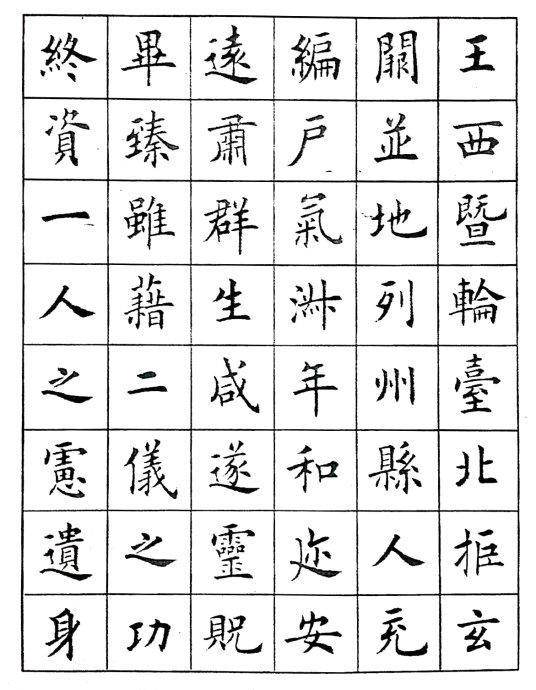 王西暨輪臺北拒玄
闕並地列州縣人充
編戶氣淋年和迩安
遠肅群生咸遂靈貺
畢臻雖藉二儀之功
終資一人之慮遺身